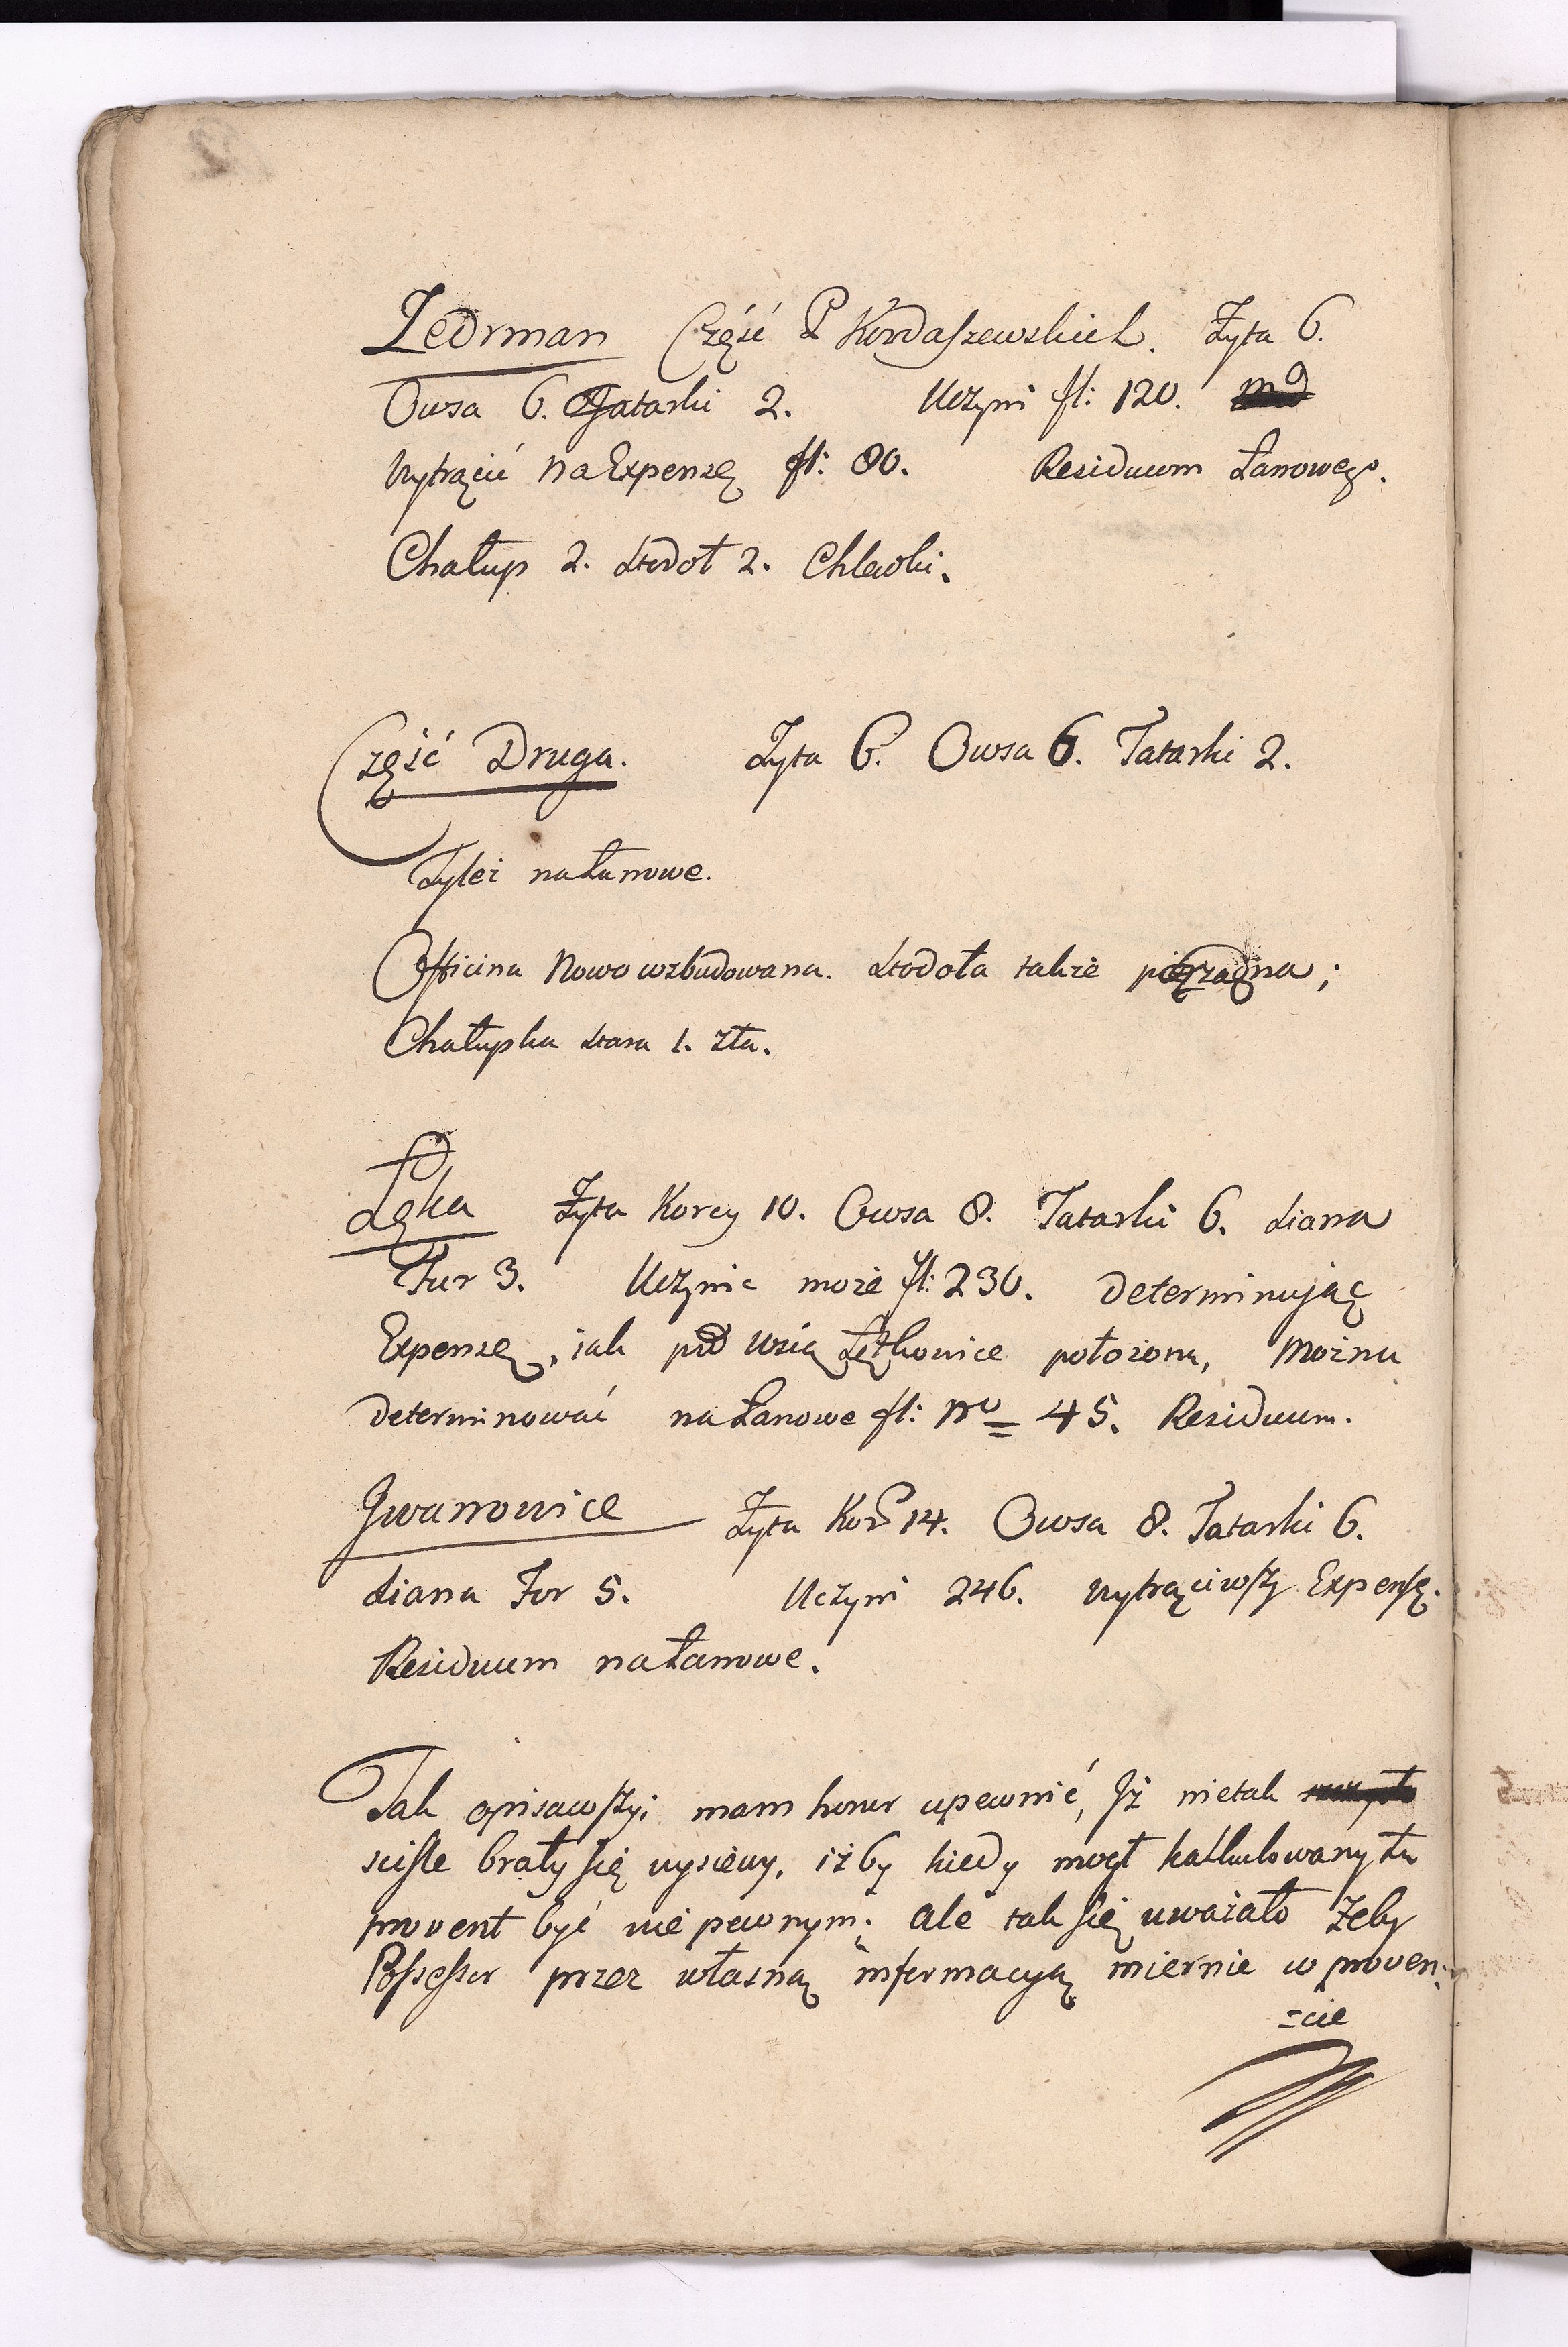 Zedrman Część P Kordaszewskich. Żyta 6.
Owsa 6. Tatarki 2. Uczyni fl: 120.
Wytrącić na Expensę fl: 80. Residuum Łanowego.
Chałup 2. Stodoł 2. Chlewki.
Część Druga. Żyta 6. Owsa 6. Tatarki 2.
Tyleż na Łanowe.
Officina Nowo wzbudowana. Stodoła także porządna;
Chałupka stara 1. zła.
Łęka Żyta Korcy 10. Owsa 8. Tatarki 6. Siana
Fur 3. Uczynic może fl: 230. Determinując
Expensę, iak pod wsią Łężkowice położona, Można
determinować na Łanowe fl: No 45. Residuum.
Jwanowice Żyta Kor 14. Owsa 8. Tatarki 6.
Siana For 5. Uczyni 246. wytrąciwszy Expensę.
Residuum na Łanowe.
Tak opisawszy; mam honor upewnić, Jż nietak
sciśle brały się wysiewy, iżby kiedy mogł kalkulowany tu
provent być nie pewnym; ale tak się uważało żeby
Possessor przez własną informacyą miernie w proven:
=cie